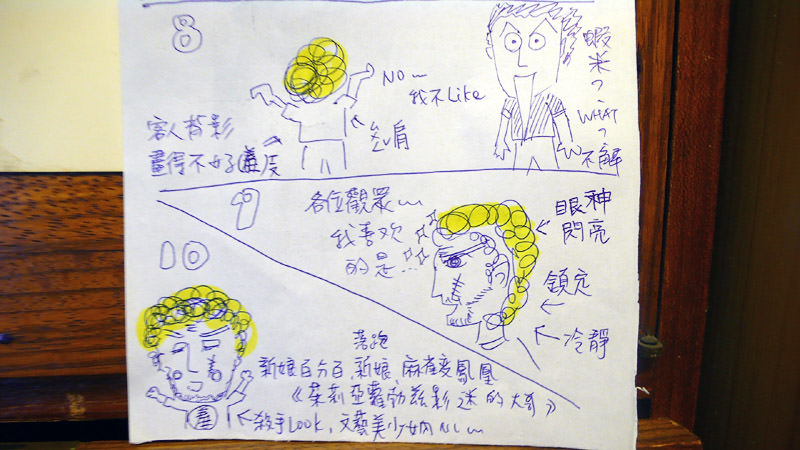 8
NO~
我不Like
肩
蝦米?
WHAT?
不解
客人背影
畫得不好
9
各位觀眾~~
我喜欢
的是...
眼神
閃亮
鎖定
冷靜
10
落跑
新娘百分百、新娘、麻雀变鳳凰
《茱莉亞蘿勃茲影迷的大哥》
殺手Look,文藝美少女內心~